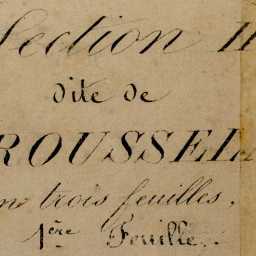 Section
dite de
ROUSSEL
trois feuilles.
1ère Feuille.